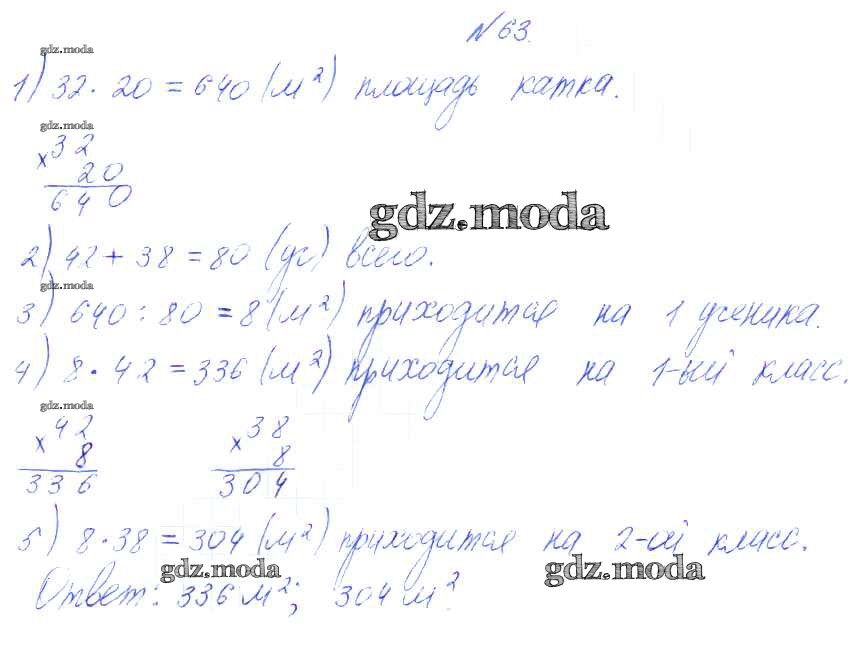 №63.
gdz.moda
1) 32 · 20 = 640 (м²) площадь катка.
gdz.moda
× 32
20
640
gdz.moda
2) 42 + 38 = 80 (уч) всего.
gdz.moda
3) 640 : 80 = 8 (м²) приходится на 1 ученика.
4) 8 · 42 = 336 (м²) приходится на 1-ый класс.
gdz.moda
× 42
8
336
× 38
8
304
5) 8 · 38 = 304 (м²) приходится на 2-ой класс.
gdz.moda
gdz.moda
Ответ: 336 м²; 304 м².